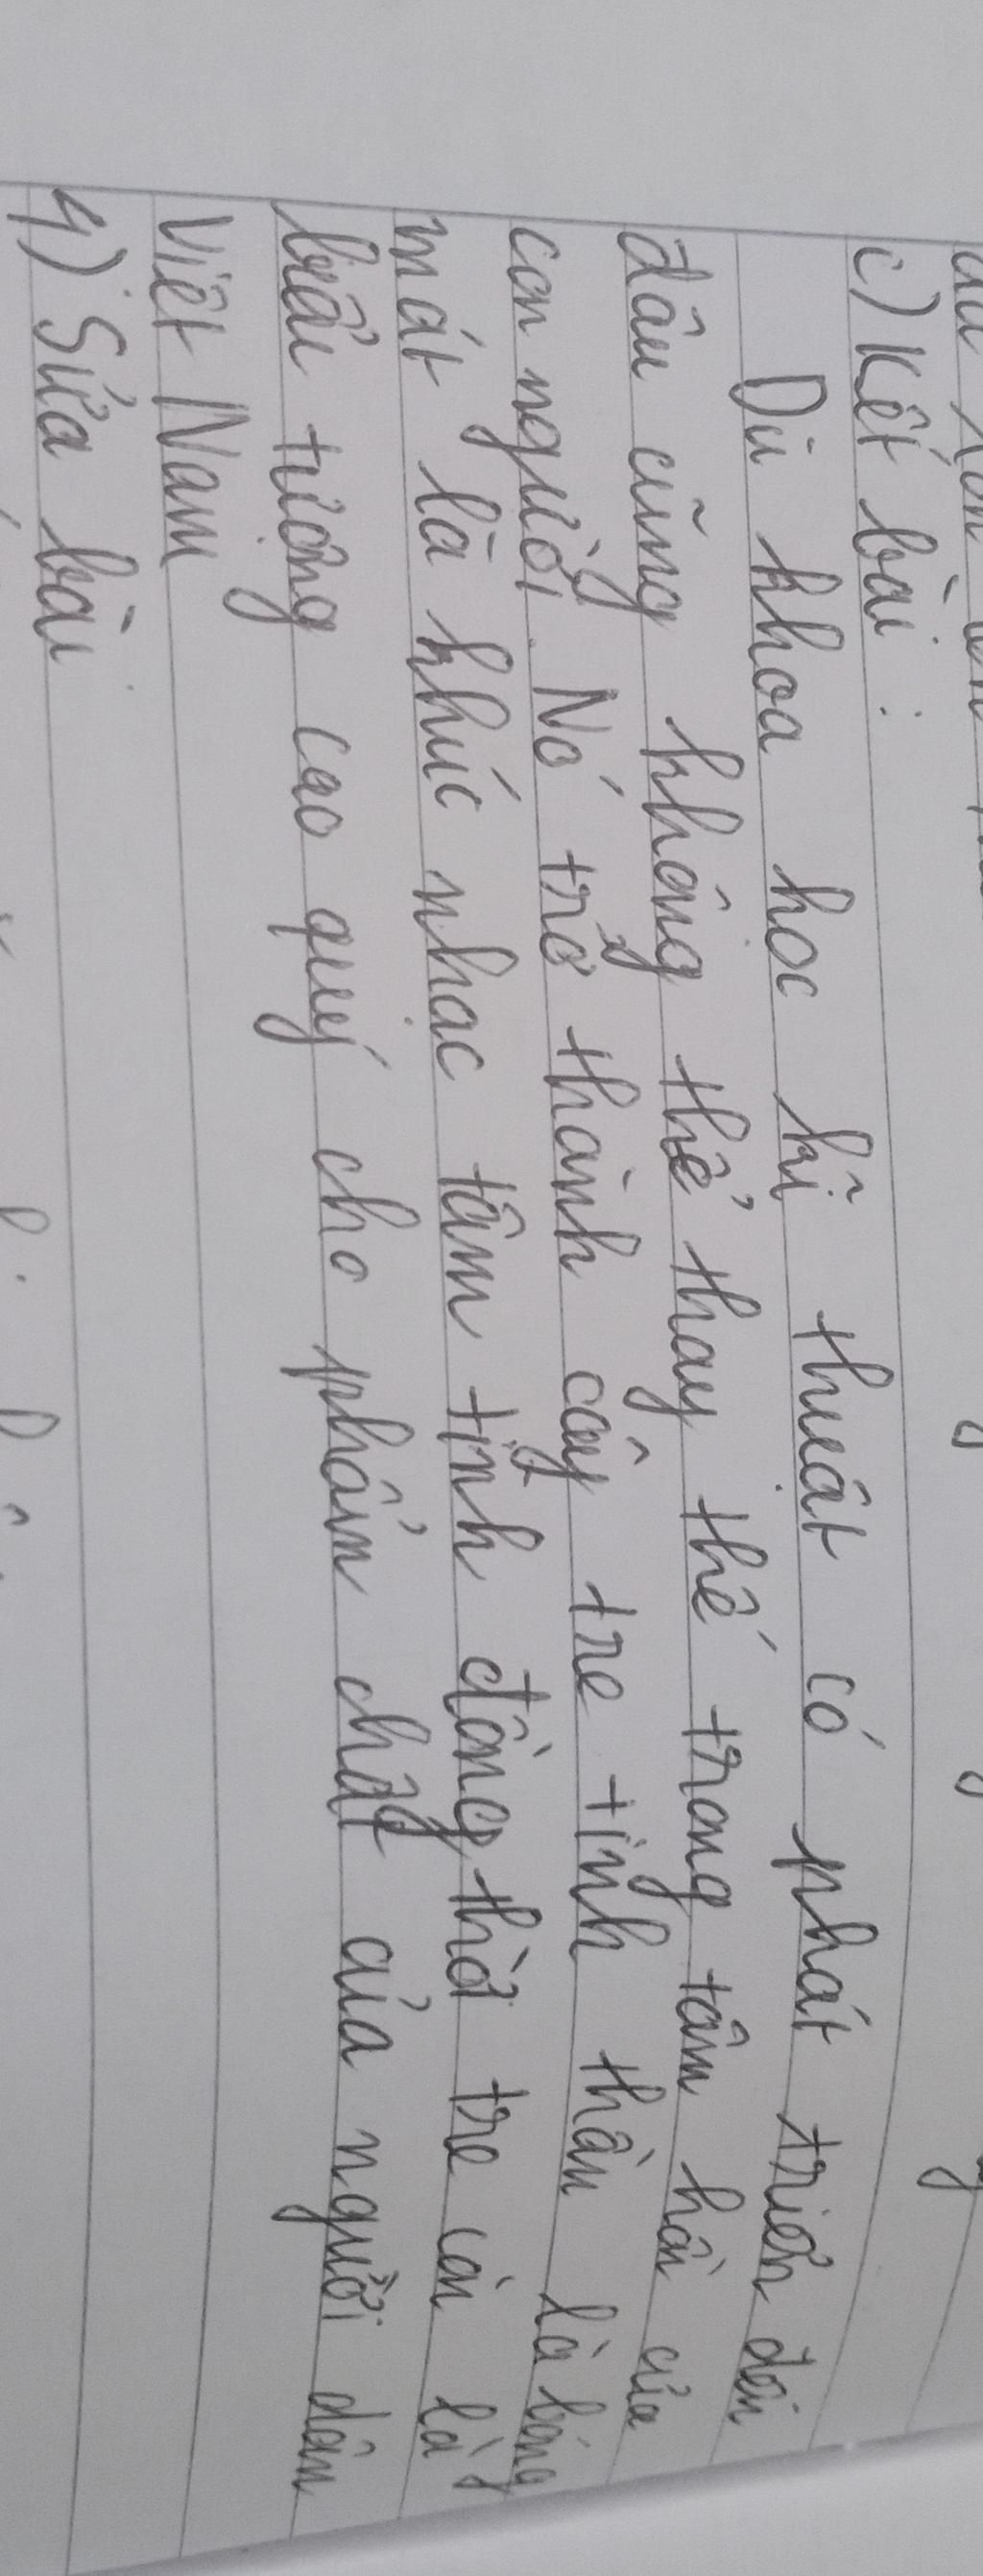 c) Kết bài:
Dù khoa học kĩ thuật có phát triển đến
đâu cũng không thể thay thế trong tâm hồn của
con người. Nó trở thành cây tre tinh thần là bóng
mát là khúc nhạc tâm tình đồng thời tre còn là
biểu tượng cao quý cho phẩm chất của người dân
Việt Nam
4) Sửa bài